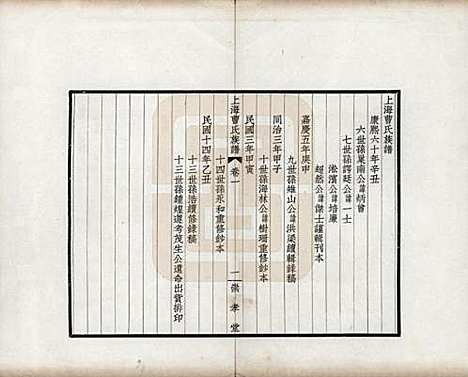 上海曹氏族譜
康熙六十年辛丑
六世孫巢南公諱炳曾
七世孫諤廷公諱一士
淞濱公諱培廉
嘉慶五年庚申
九世孫雄山公諱洪梁續輯錄稿
同治三年甲子
十世孫海林公諱樹珊重修鈔本
民國三年甲寅
上海曹氏族譜
卷一
一
崇孝堂
十四世孫永和重修鈔本
民國十四年乙丑
十三世孫浩續修錄稿
十三世孫鍾煌遵考茂生公遺命出貲排印